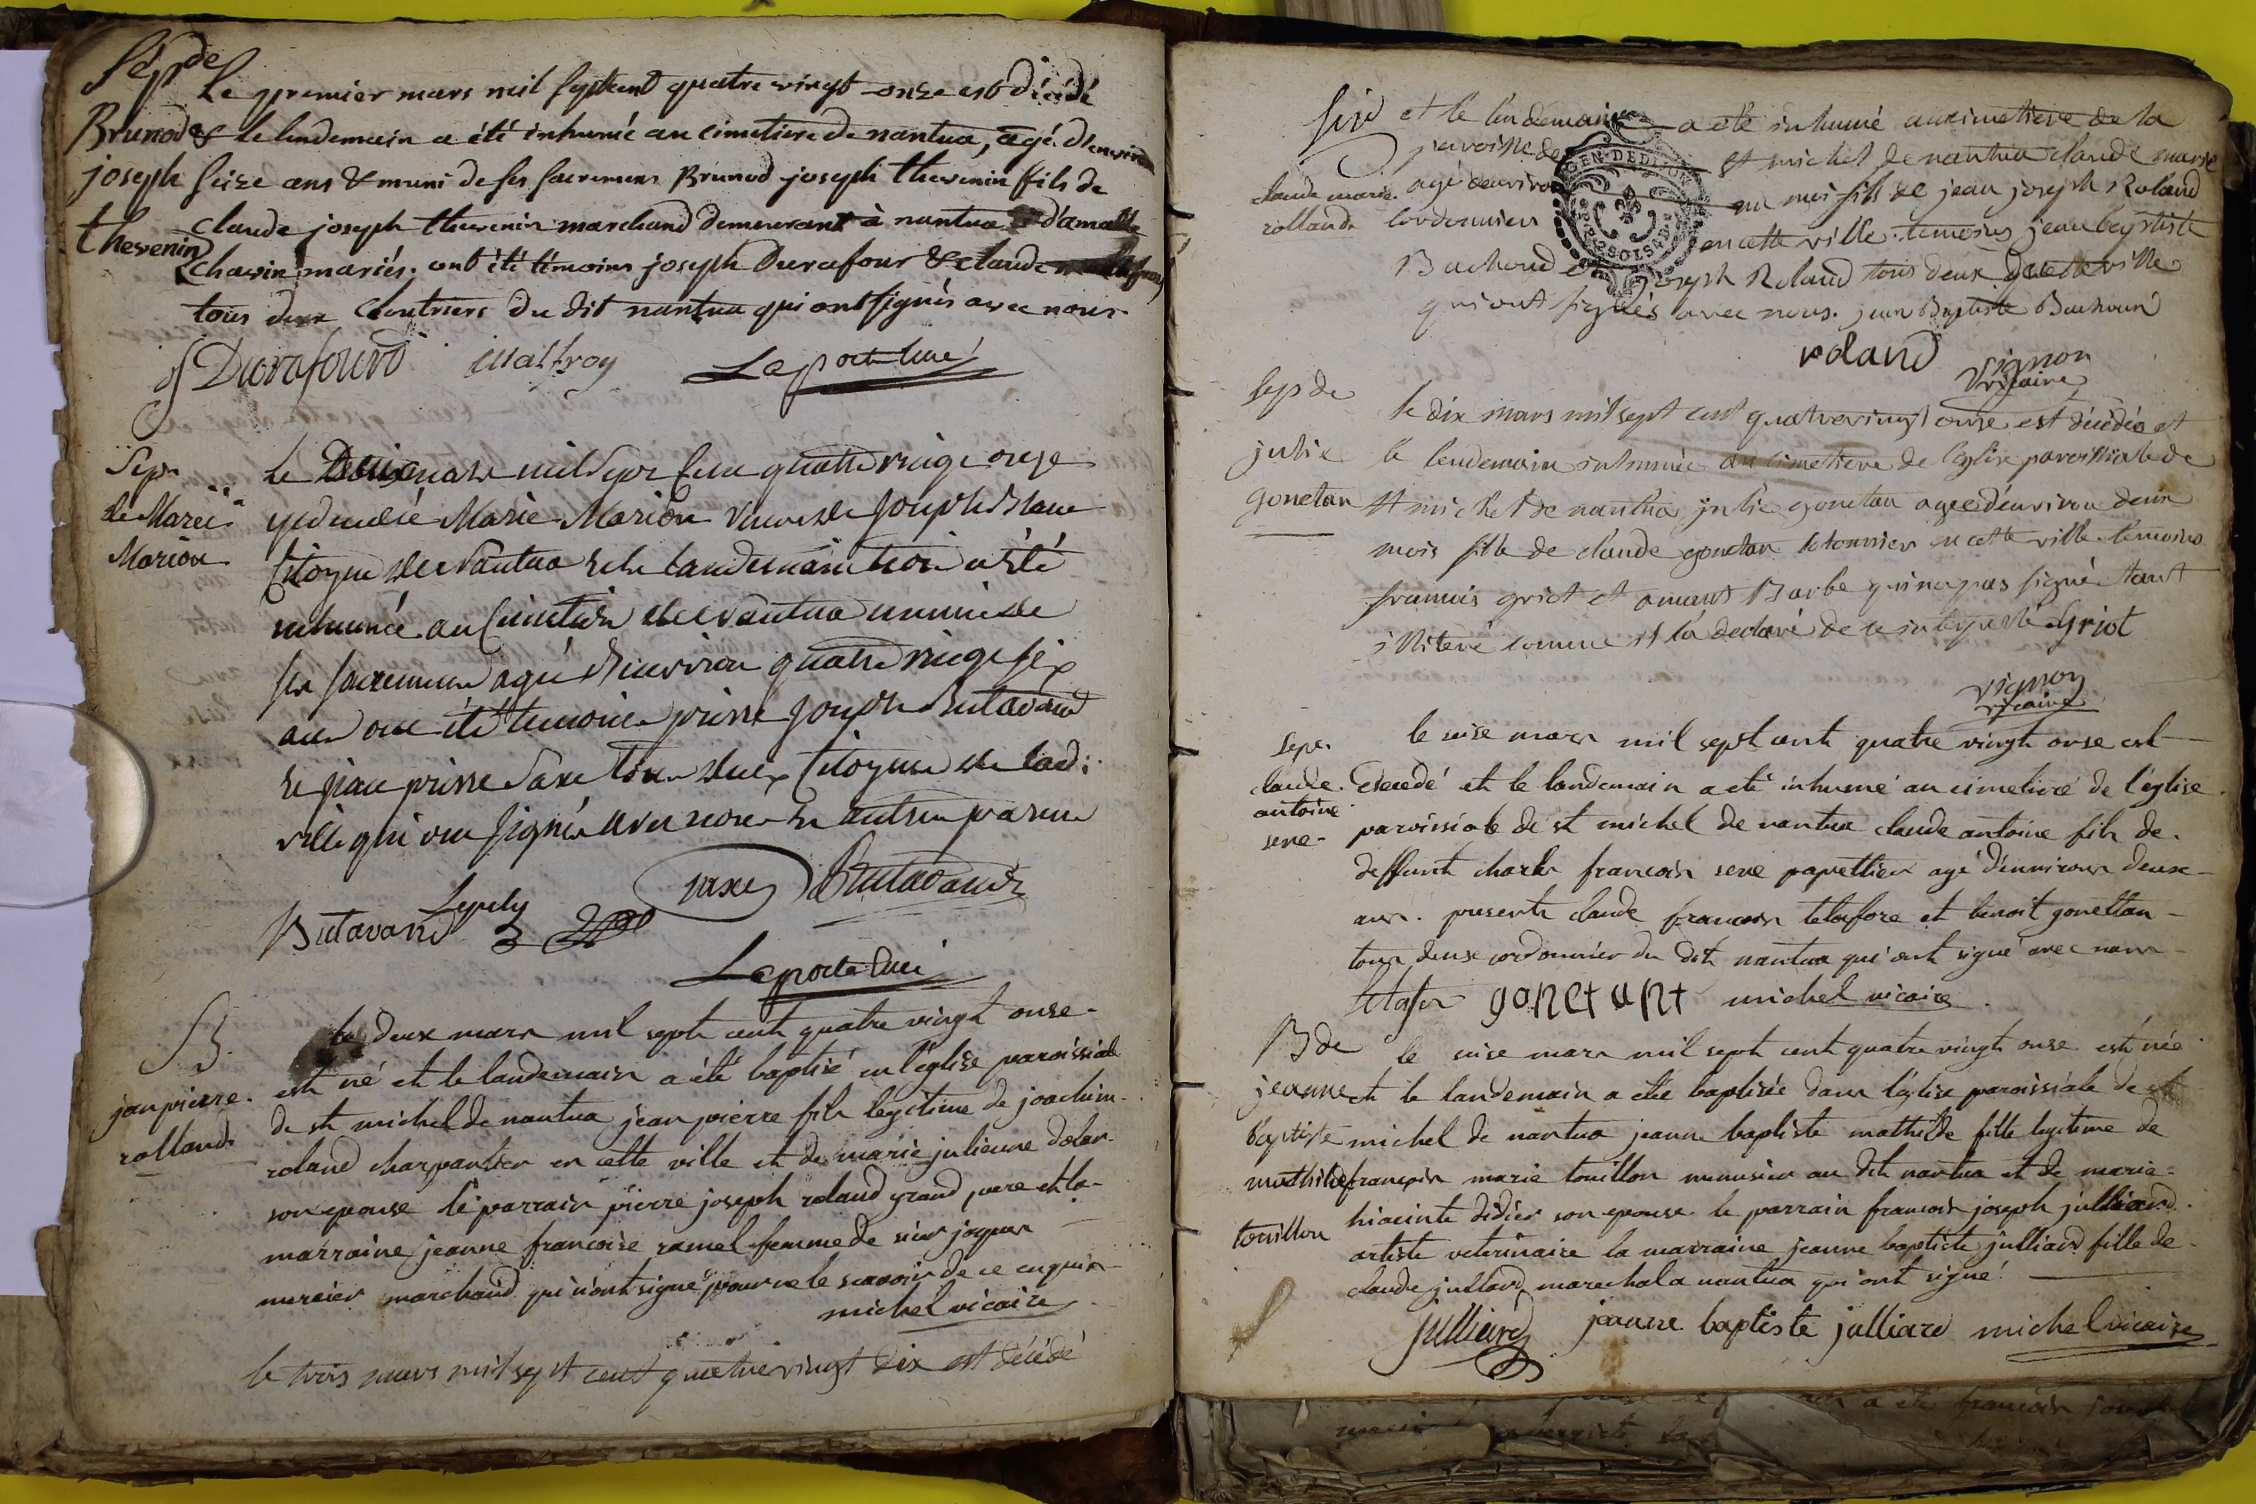 Sepde
Le premier mars mil septcent quatre vingt onze est décédé
Brunod & le lendemain a été inhumé au cimetiere de nantua, agé d'environ
joseph seize ans & muni de ses sacremens Brunod joseph thevenin fils de
thevenin claude joseph thevenin marchand demeurant à nantua & d'
chavin mariés. ont été témoins joseph Durafour & claude
tous deux du dit nantua qui ont signés avec nous
J Durafourd malfroy Leporte curé
Sepr le mars mil sept cent quatre vingt onze
de Marie décédée Marie Marion veuve de Joseph Blanc
Marion Citoyen de Nantua & le landemain trois a été
inhumée au Cimetiere de Nantua munie de
ses sacremens agée d'environ quatre vingt six
ans ont été temoins pierre Joseph Butavand
& jean pierre Saxe tous deux Citoyens de lad:
ville qui ont signés avec nous
saxe Butavand
Butavand
Leporte curé
B. le deux mars mil sept cent quatre vingt onse
est né et le landemain a été baptisé en l'église paroissiale
jean pierre de st michel de nantua jean pierre fils legitime de joachim
rolland roland charpantier en cette ville et de marie julienne
son epouse le parrain pierre joseph roland grand pere et la
marraine jeanne francoise ramel femme de
mercier marchand qui n'ont signé pour ne le scavoir de ce enquis
michel vicaire
le trois mars mil sept cent quatre vingt dix est décédé
Sepd et le lendemain a été inhumé au cimetiere de la
paroisse de st michel de nantua claude marie
claude marie agé d'environ un moi fils de jean joseph Roland
rolland cordonnier en cette ville. temoins jean baptiste
Bachoud et joseph Roland tous deux de cette ville
qui ont signés avec nous. jean Baptiste Bachoud
roland vignon
vicaire
Sep de le dix mars mil sept cent quatrevingt onse est décédée et
julie le lendemain inhumée au cimetiere de l'église paroissiale de
gonetan st michel de nantua julie gonetan agée d'environ deux
mois fille de claude gonetan en cette ville. temoins
francois griot et amant Barbe qui na pas signé étant
illiteré comme il l'a declaré de ce interpellé Griot
vignon
vicaire
Sepr. le seise mars mil sept cent quatre vingt onse est
claude decedé et le landemain a eté inhumé au cimetiere de l'église
antoine paroissiale de st michel de nantua claude antoine fils de
sene deffunt charles francois sene papettier agé d'environ deux
ans. presents claude francois et benoit gonettan
tous deuse cordonnier du dit nantua qui ont signé avec nous
gonetant michel vicaire
B de le seise mars mil sept cent quatre vingt onse est née
jeanne et le landemain a été baptisée dans l'église paroissiale de st
baptiste michel de nantua jeanne baptiste mathilde fille legitime de
mathilde françois marie touillon menusier au dit nantua et de marie
touillon hiacinte didier son epouse le parrain francois joseph julliard
artiste veterinaire la marraine jeanne baptiste julliard fille de
claude julliard marechal a nantua qui ont signé
julliard jeanne baptiste julliard michel vicaire